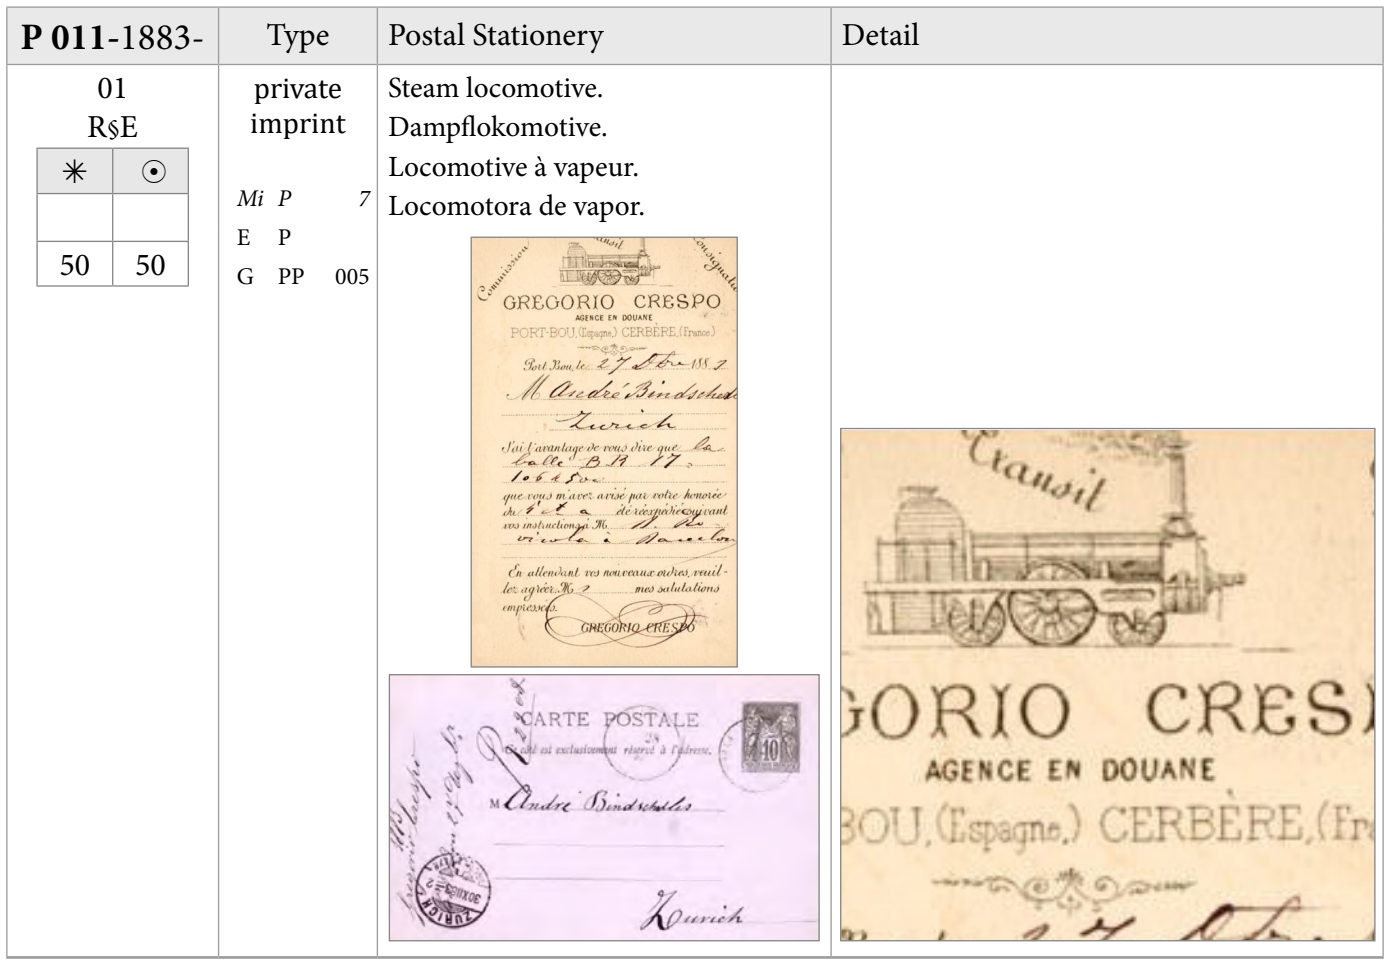 P 011-1883-
Type
Postal Stationery
Detail
01
R§E
50 50
private
imprint
Mi P 7
E P
G PP 005
Steam locomotive.
Dampflokomotive.
Locomotive à vapeur.
Locomotora de vapor.
Commission
Transit
GREGORIO CRESPO
AGENCE EN DOUANE
PORT-BOU,(Espagne.) CERBÈRE,(France.)
Port Bou, le 27 188
M André
Zurich
J'ai l'avantage de vous dire que la
balle B R 17
que vous m'avez avisé par votre honorée
du été réexpédiée suivant
vos instructions à M
à
En attendant vos nouveaux ordres, veuil-
lez agréer, M mes salutations
empressées.
GREGORIO CRESPO
CARTE POSTALE
Ce côté est exclusivement réservé à l'adresse.
10
M André
Zurich
ZURICH
30 XII 83
Transit
GORIO CRESP
AGENCE EN DOUANE
BOU,(Espagne.) CERBÈRE,(Fra
27